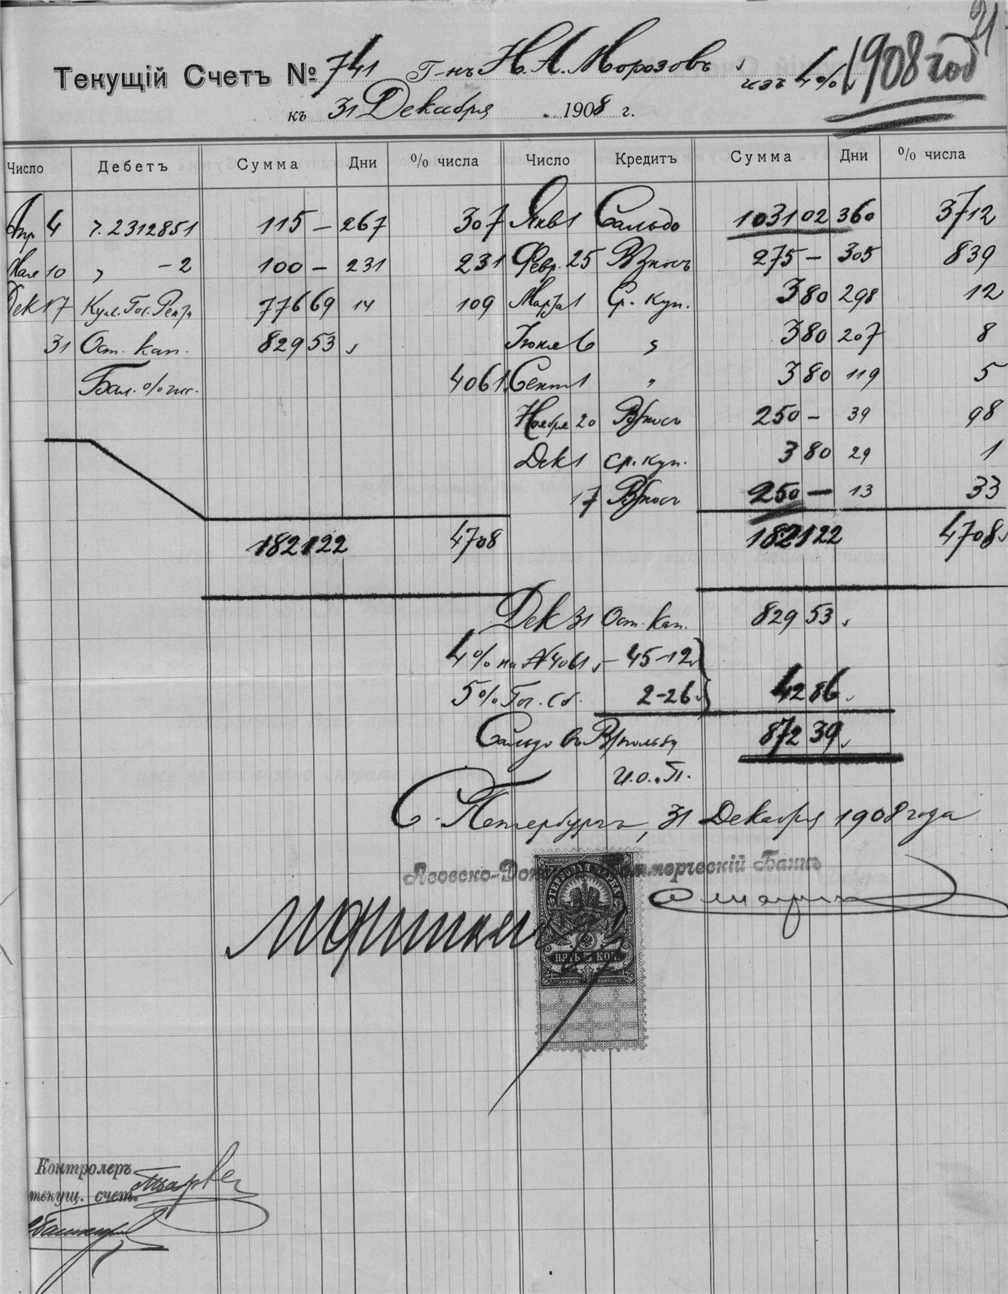 21
Текущій Счетъ № 741 Г-нъ Н. А. Морозовъ изъ 4% 1908 год
къ 31 Декабря 1908 г.
Число Дебетъ Сумма Дни % числа Число Кредитъ Сумма Дни % числа
Апр 4 ч. 2312851 115 — 267 307 Янв 1 Сальдо 1031 02 360 3712
Мая 10 " — 2 100 — 231 231 Февр. 25 Взносъ 275 — 305 839
Дек 17 Куп. Гос. Рент 776 69 14 109 Марта 1 Ср. куп. 3 80 298 12
31 Ост. кап. 829 53 Іюня 6 " 3 80 207 8
Бал. % чис. 4061 Сент 1 " 3 80 119 5
Ноября 20 Взносъ 250 — 39 98
Дек 1 ср. куп. 3 80 29 1
17 Взносъ 250 — 13 33
1821 22 4708 1821 22 4708
Дек 31 Ост. кап. 829 53
4% на № 4061 — 45-12
5% Гос. сб. 2-26 42 86
Сальдо въ Вашу пользу 872 39
И.О.П.
С. Петербургъ, 31 Декабря 1908 года
Азовско-Донской Коммерческій Банкъ
ПЯТЬ 5 КОП.
Контролеръ
текущ. счет.